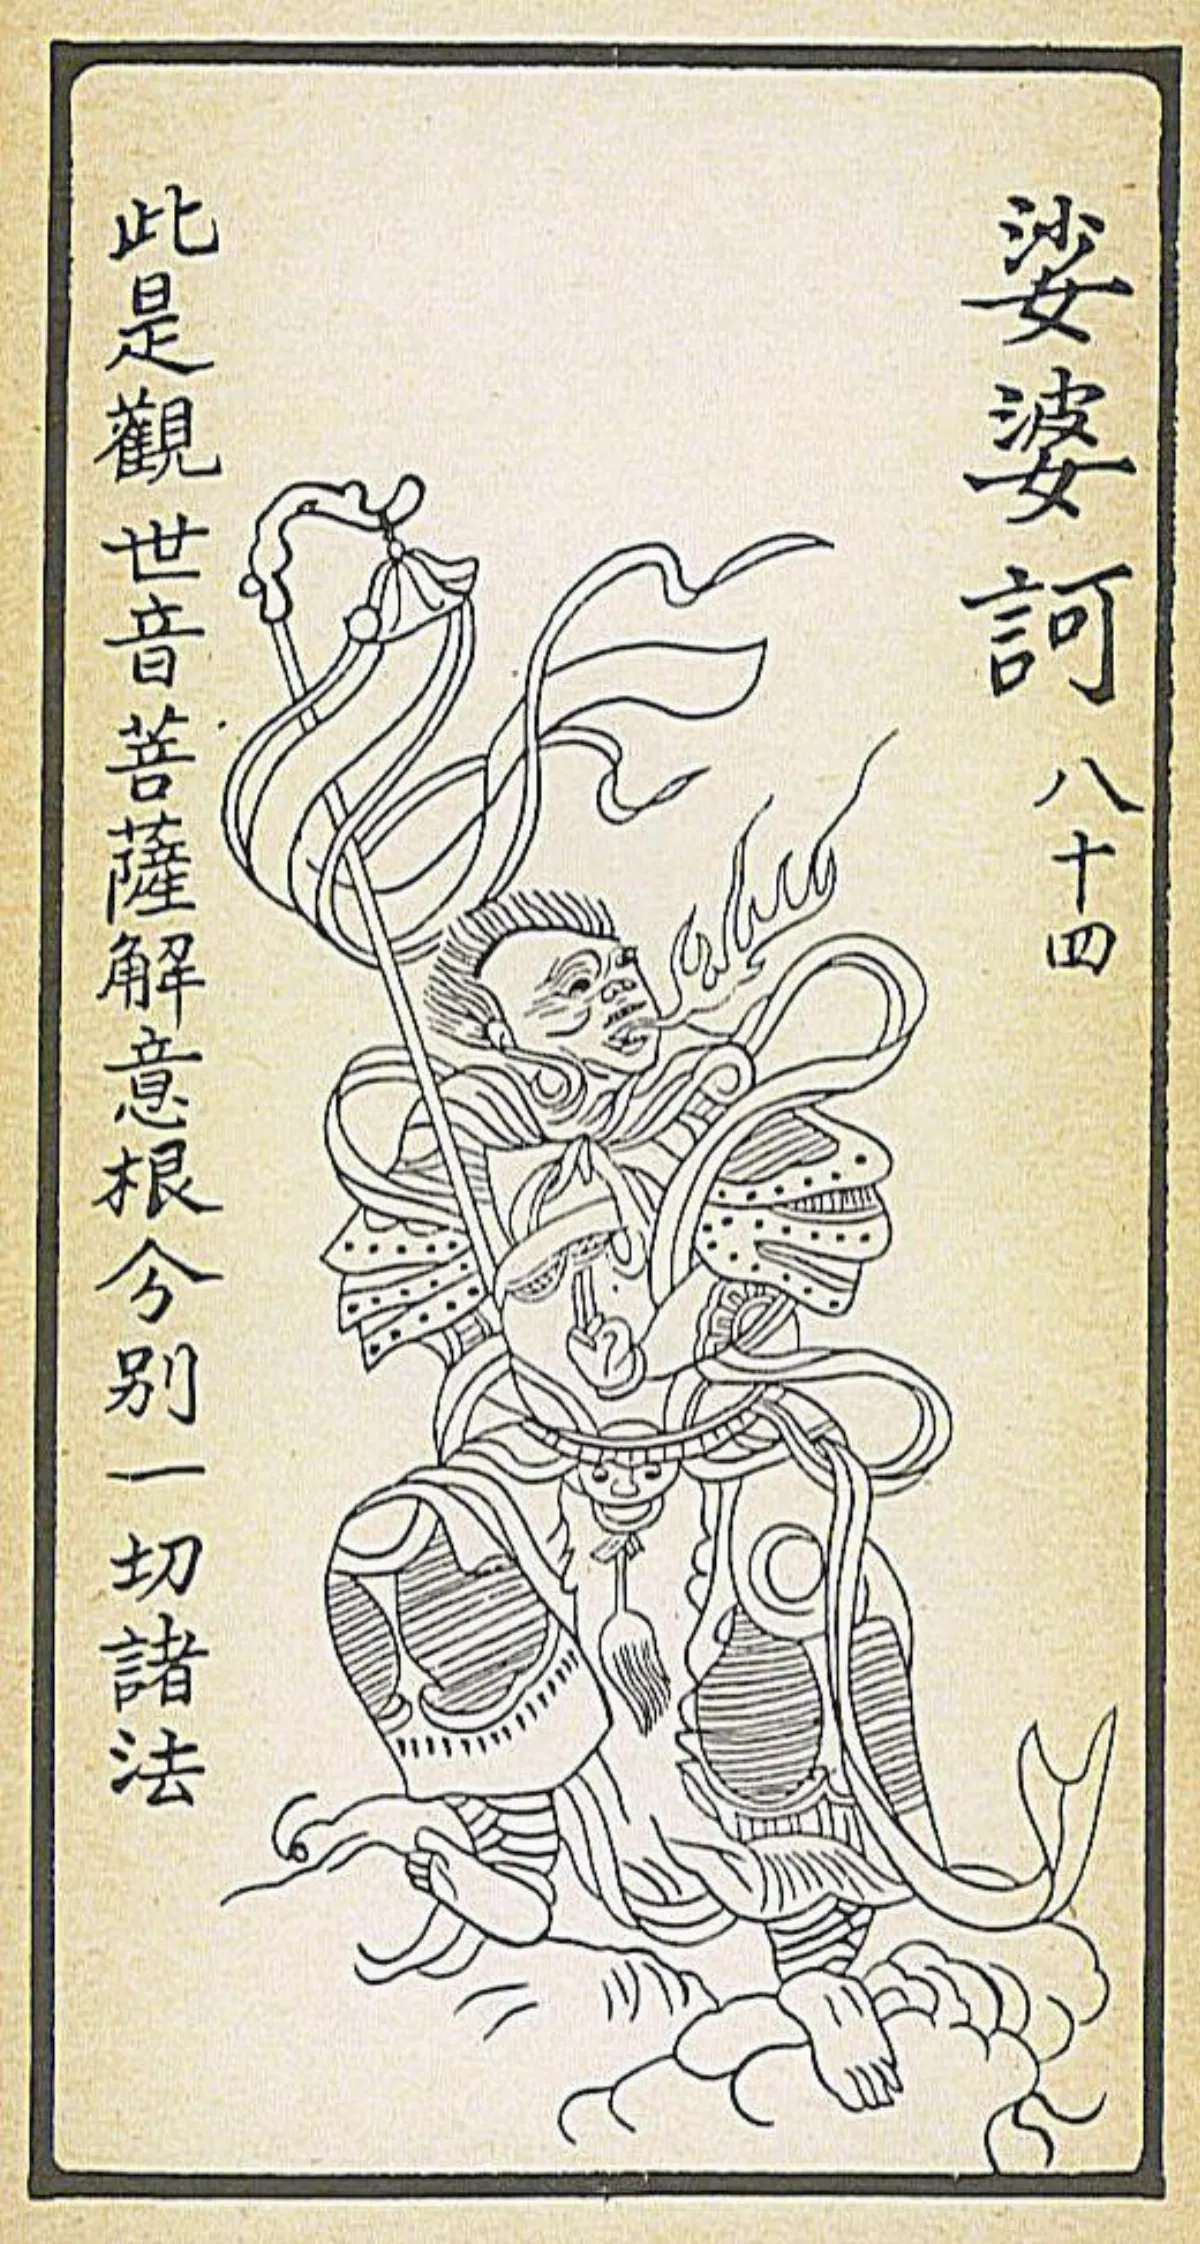 娑婆訶 八十四
此是觀世音菩薩解意根令別一切諸法